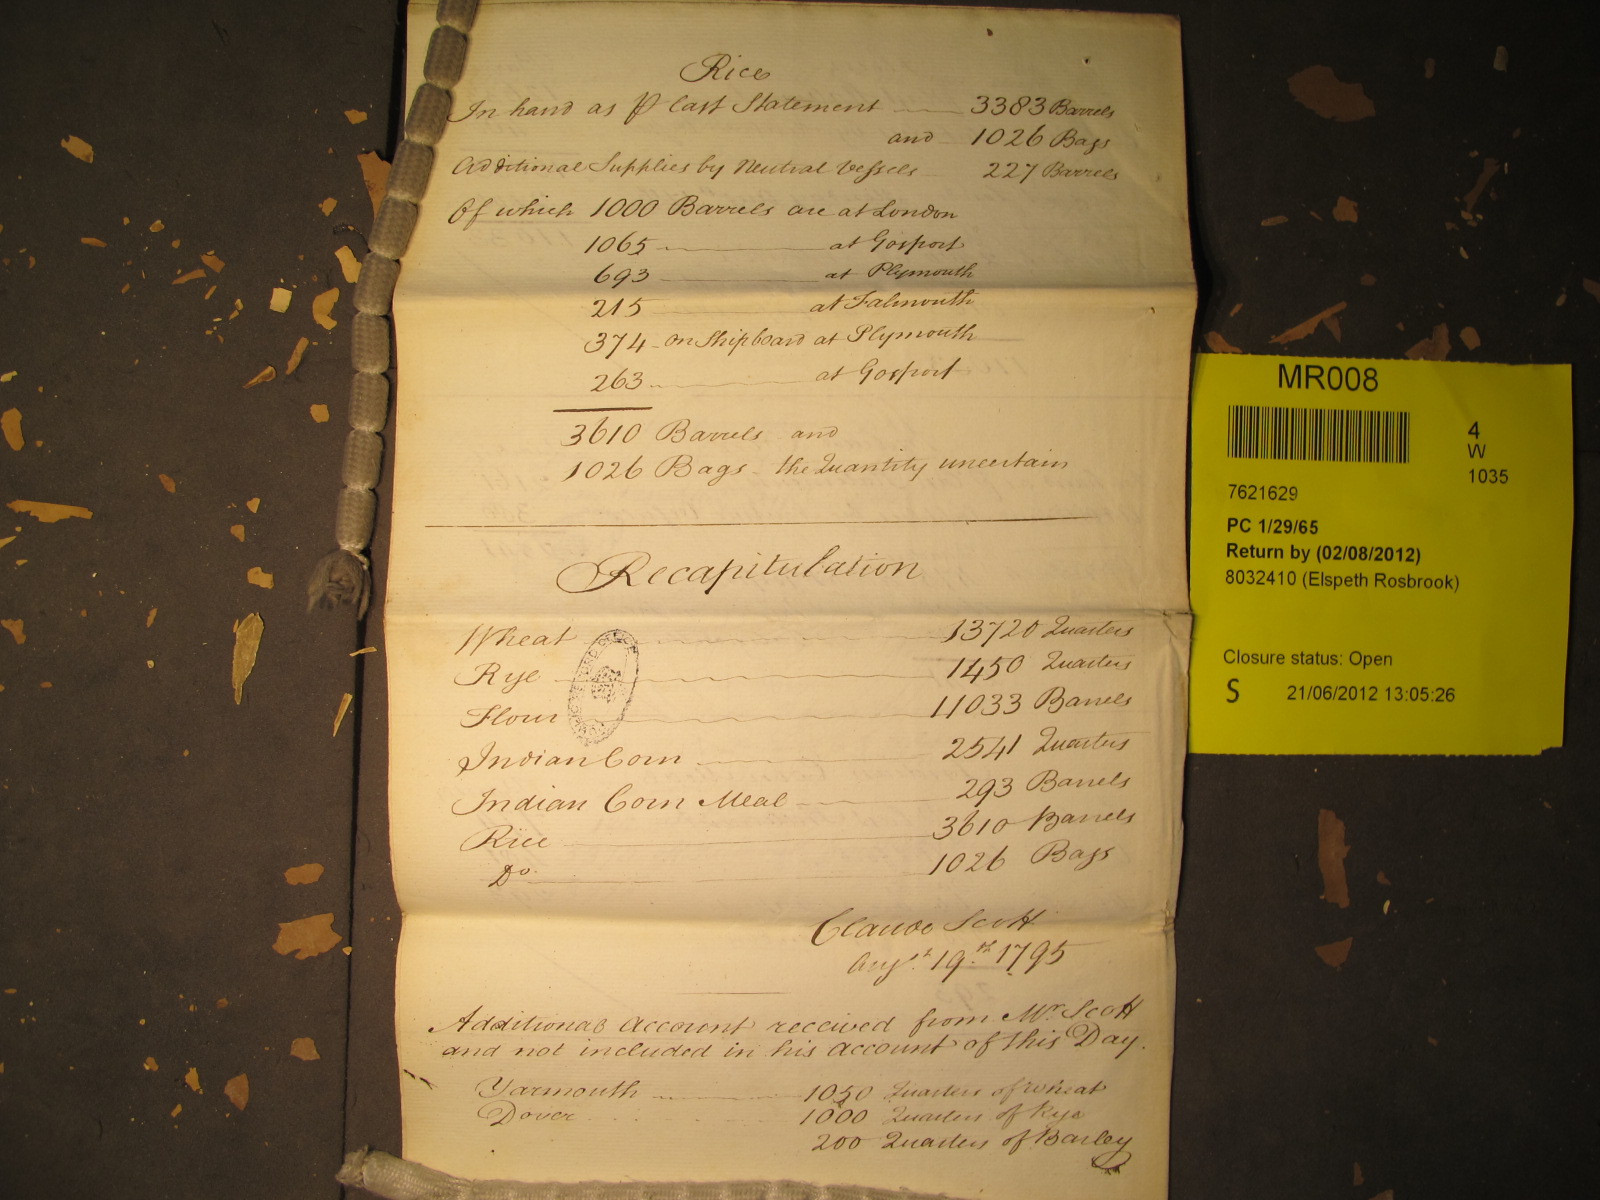 Rice
In hand as ⅌ Last Statement 3383 Barrels
and 1026 Bags
Additional Supplies by Neutral Vessels 227 Barrels
Of which 1000 Barrels are at London
1065 at Gosport
693 at Plymouth
215 at Falmouth
374 on Shipboard at Plymouth
263 at Gosport
3610 Barrels and
1026 Bags the Quantity uncertain
Recapitulation
Wheat 13720 Quarters
Rye 1450 Quarters
Flour 11033 Barrels
Indian Corn 2541 Quarters
Indian Corn Meal 293 Barrels
Rice 3610 Barrels
Do. 1026 Bags
Claude Scott
Augst. 19.th 1795
Additional Account received from Mr. Scott
and not included in his Account of this Day.
Yarmouth 1050 Quarters of Wheat
Dover 1000 Quarters of Rye
200 Quarters of Barley
MR008
4
W
1035
7621629
PC 1/29/65
Return by (02/08/2012)
8032410 (Elspeth Rosbrook)
Closure status: Open
S 21/06/2012 13:05:26